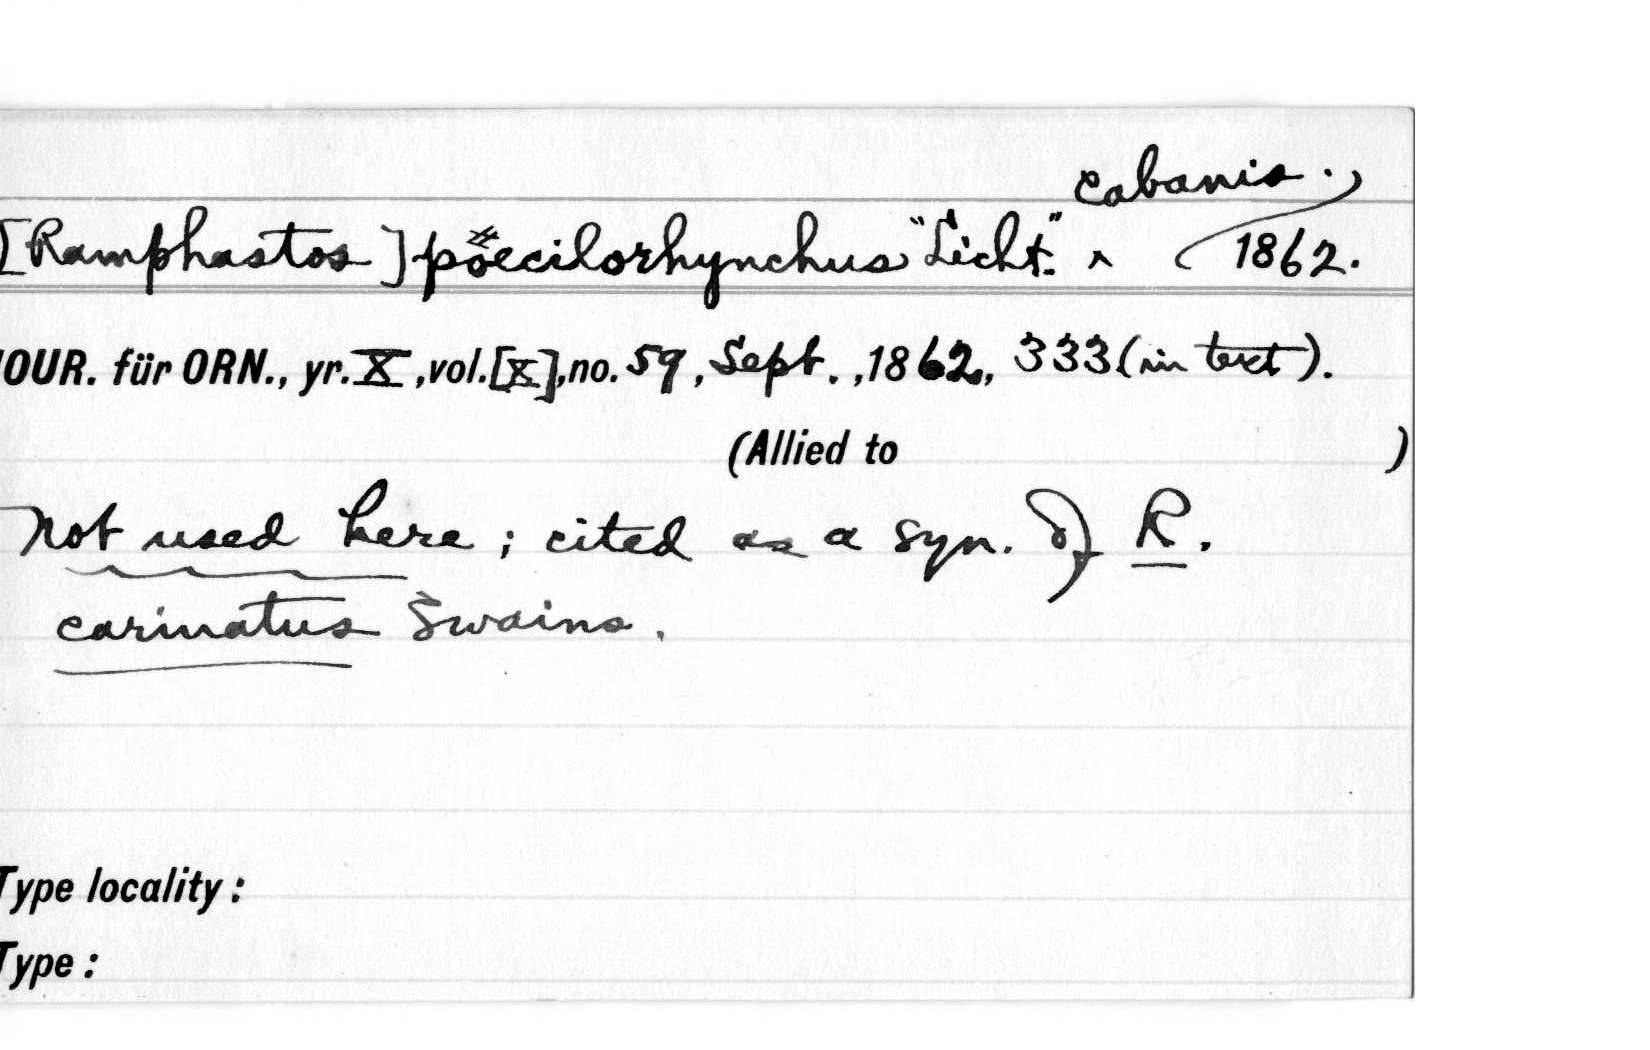 Cabanis.
[Ramphastos] poecilorhynchus "Licht." ^ 1862.
JOUR. für ORN., yr. X, vol. [X], no. 59, Sept., 1862, 333 (in text).
(Allied to )
Not used here; cited as a syn. of R.
carinatus Swains.
Type locality:
Type: